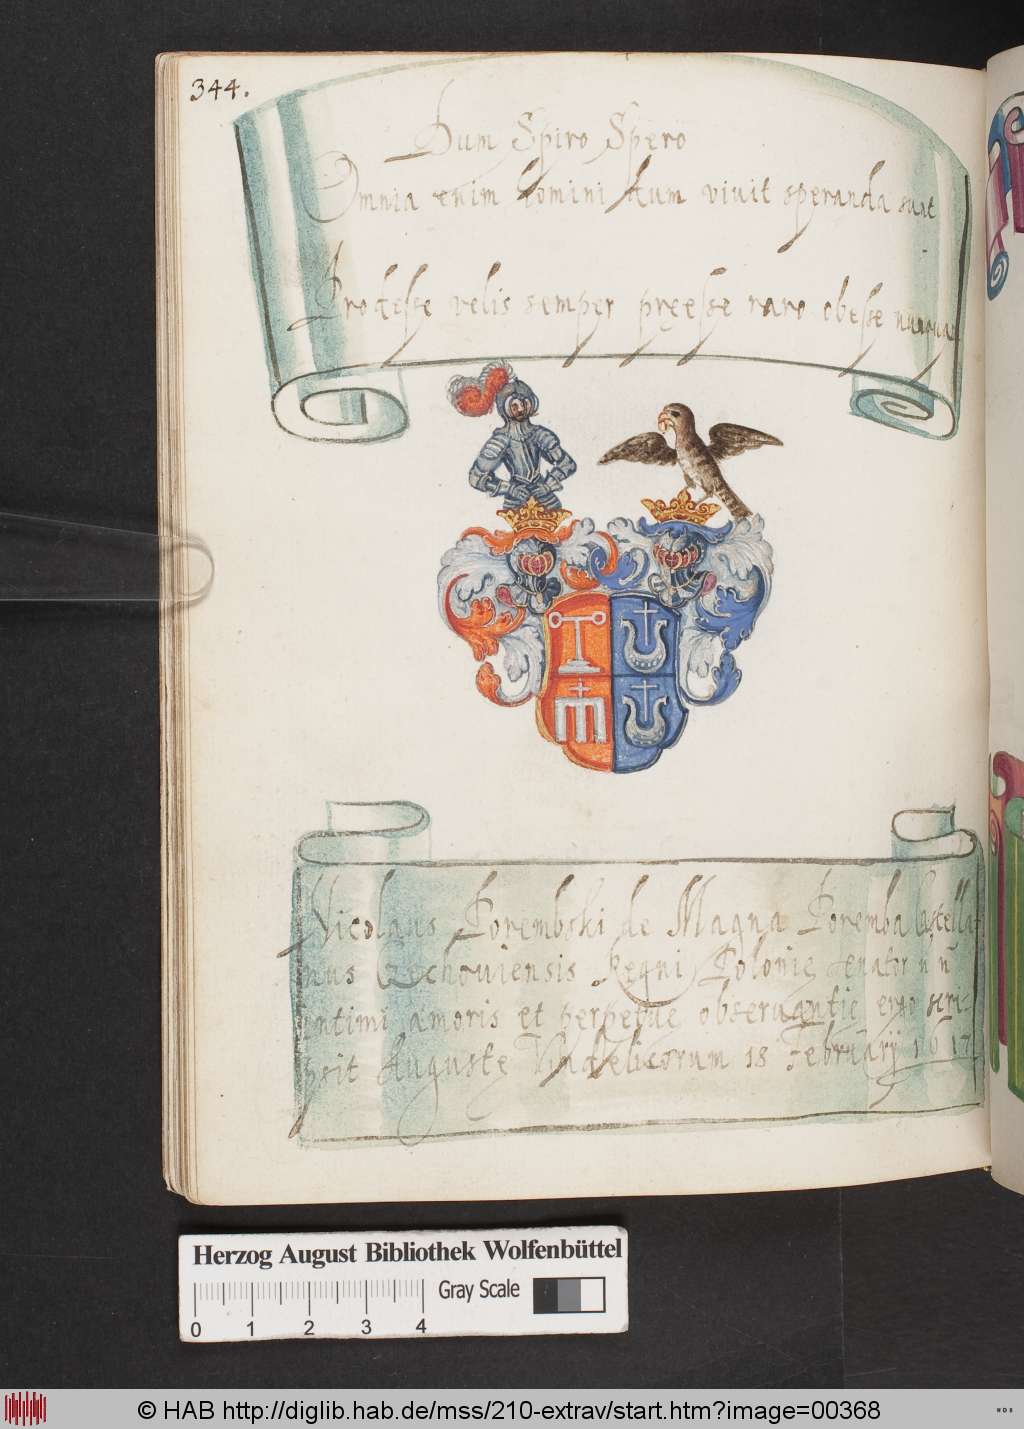 344.
Dum Spiro Spero
Omnia enim homini dum viuit speranda sunt
Prodesse velis semper preesse raro obesse
Nicolaus Porembski de Magna Poremba Castella-
nus Regni Polonie Senator
intimi amoris et perpetue obseruantie ergo scri-
psit Auguste Vindelicorum 18 Februarij 1617
Herzog August Bibliothek Wolfenbüttel
Gray Scale
0 1 2 3 4
© HAB http://diglib.hab.de/mss/210-extrav/start.htm?image=00368